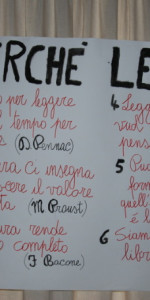 ERCHÉ LE
o per leggere
tempo per
(D Pennac)
ra Ci insegna
scere il valore
ta (M Proust)
ura rende
o completo
(F Bacone)
4 Legg
vuoi
pens
5 Può
form
quell
é l
6 Siam
libr